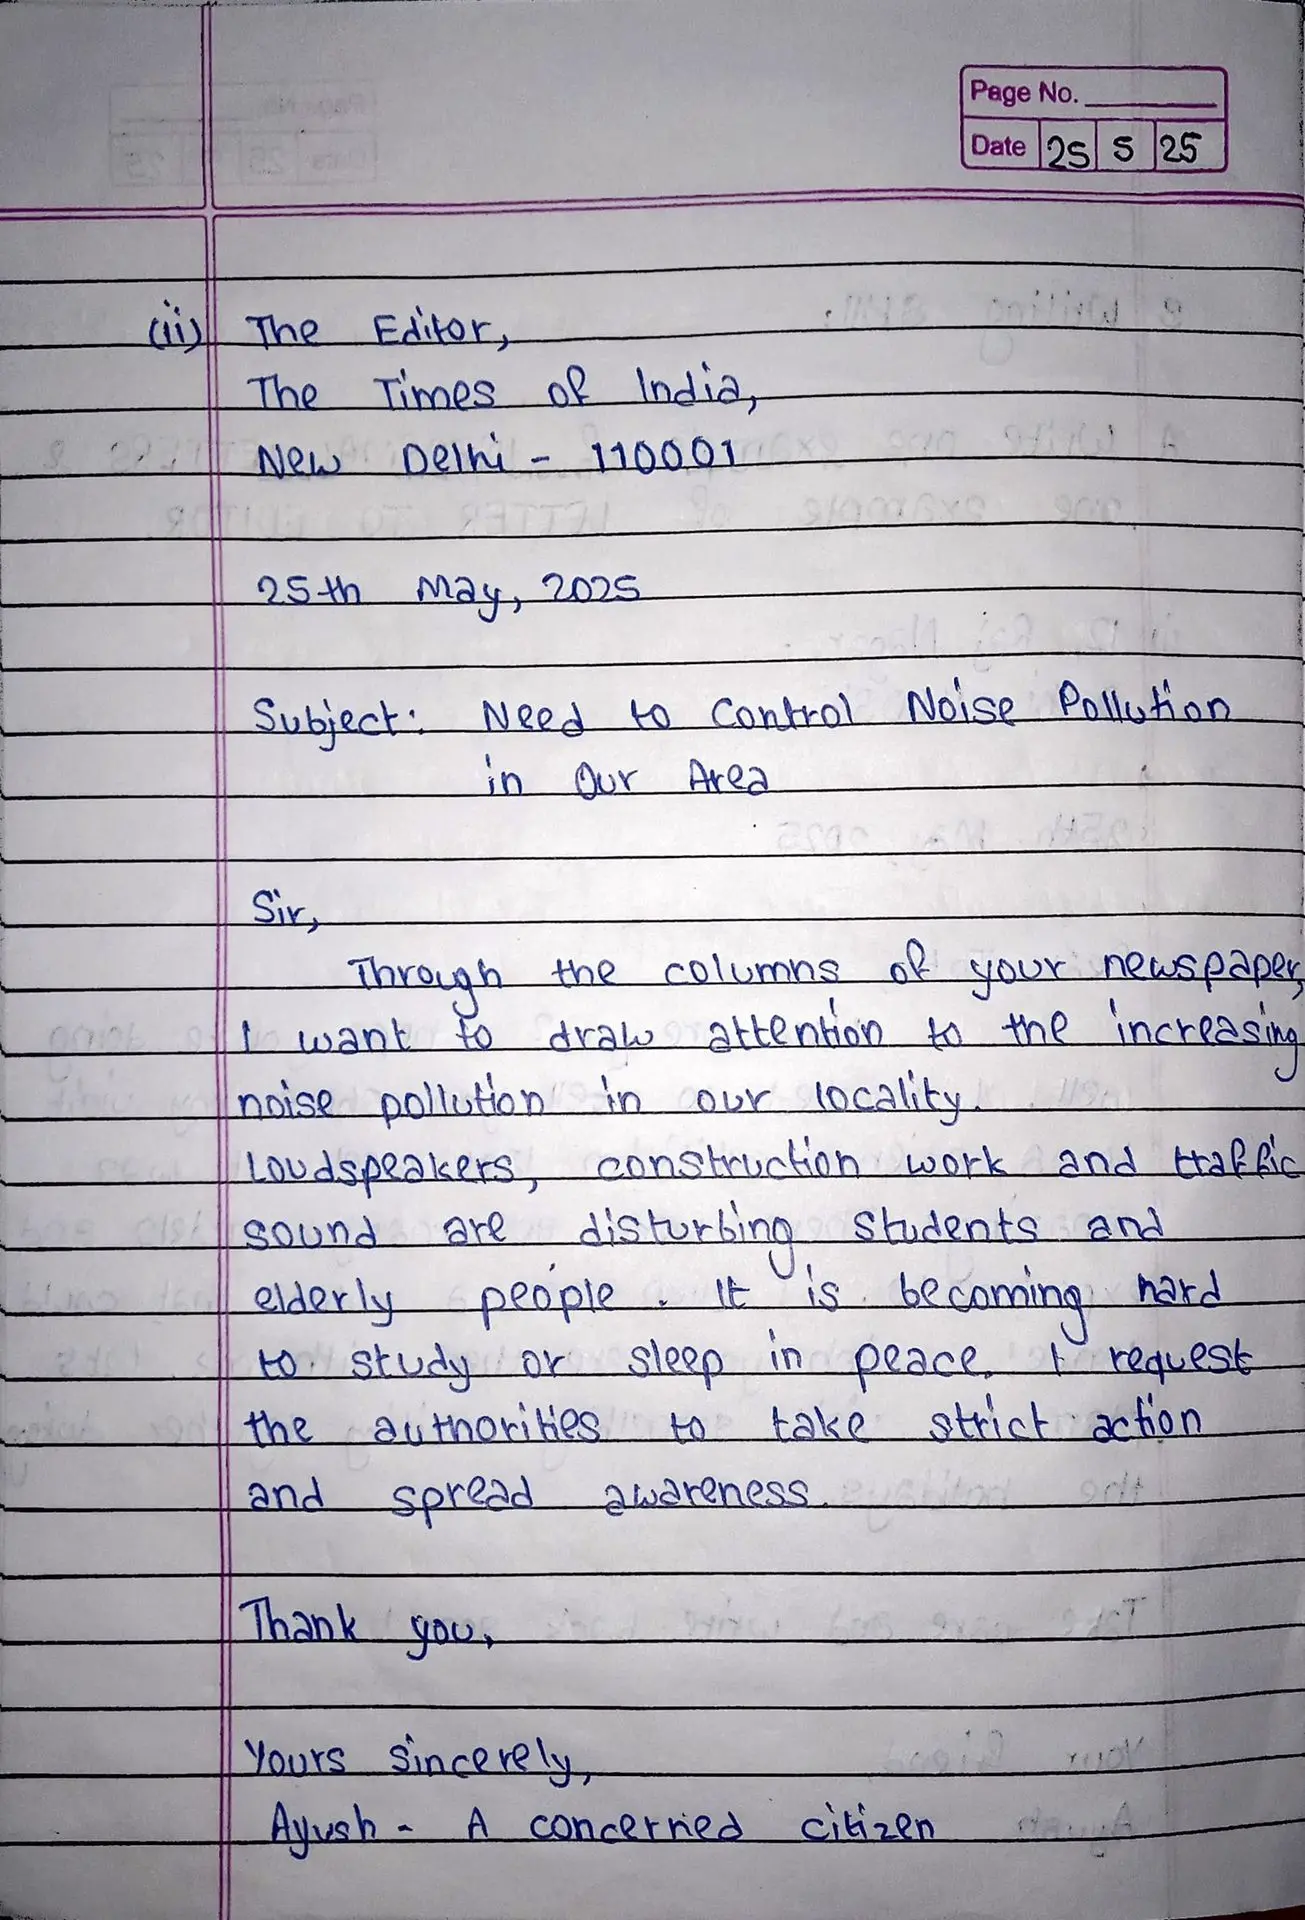 Page No.
Date 25 5 25
(ii) The Editor,
The Times of India,
New Delhi - 110001
25th May, 2025
Subject: Need to Control Noise Pollution
in Our Area
Sir,
Through the columns of your newspaper,
I want to draw attention to the increasing
noise pollution in our locality.
Loudspeakers, construction work and traffic
sound are disturbing students and
elderly people. It is becoming hard
to study or sleep in peace. I request
the authorities to take strict action
and spread awareness.
Thank you,
Yours sincerely,
Ayush - A concerned citizen